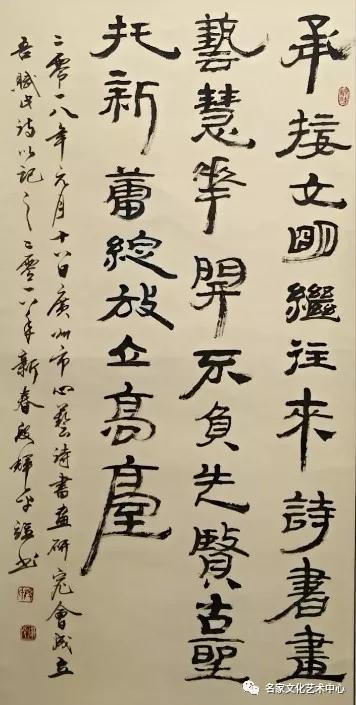 承接文明繼往來詩書畫
藝慧華開不負先賢古聖
托新蕾綻放立高臺
二零一八年元月十八日廣州市心藝詩書畫研究會成立
吾賦此詩以記之二零一八年新春
名家文化艺术中心